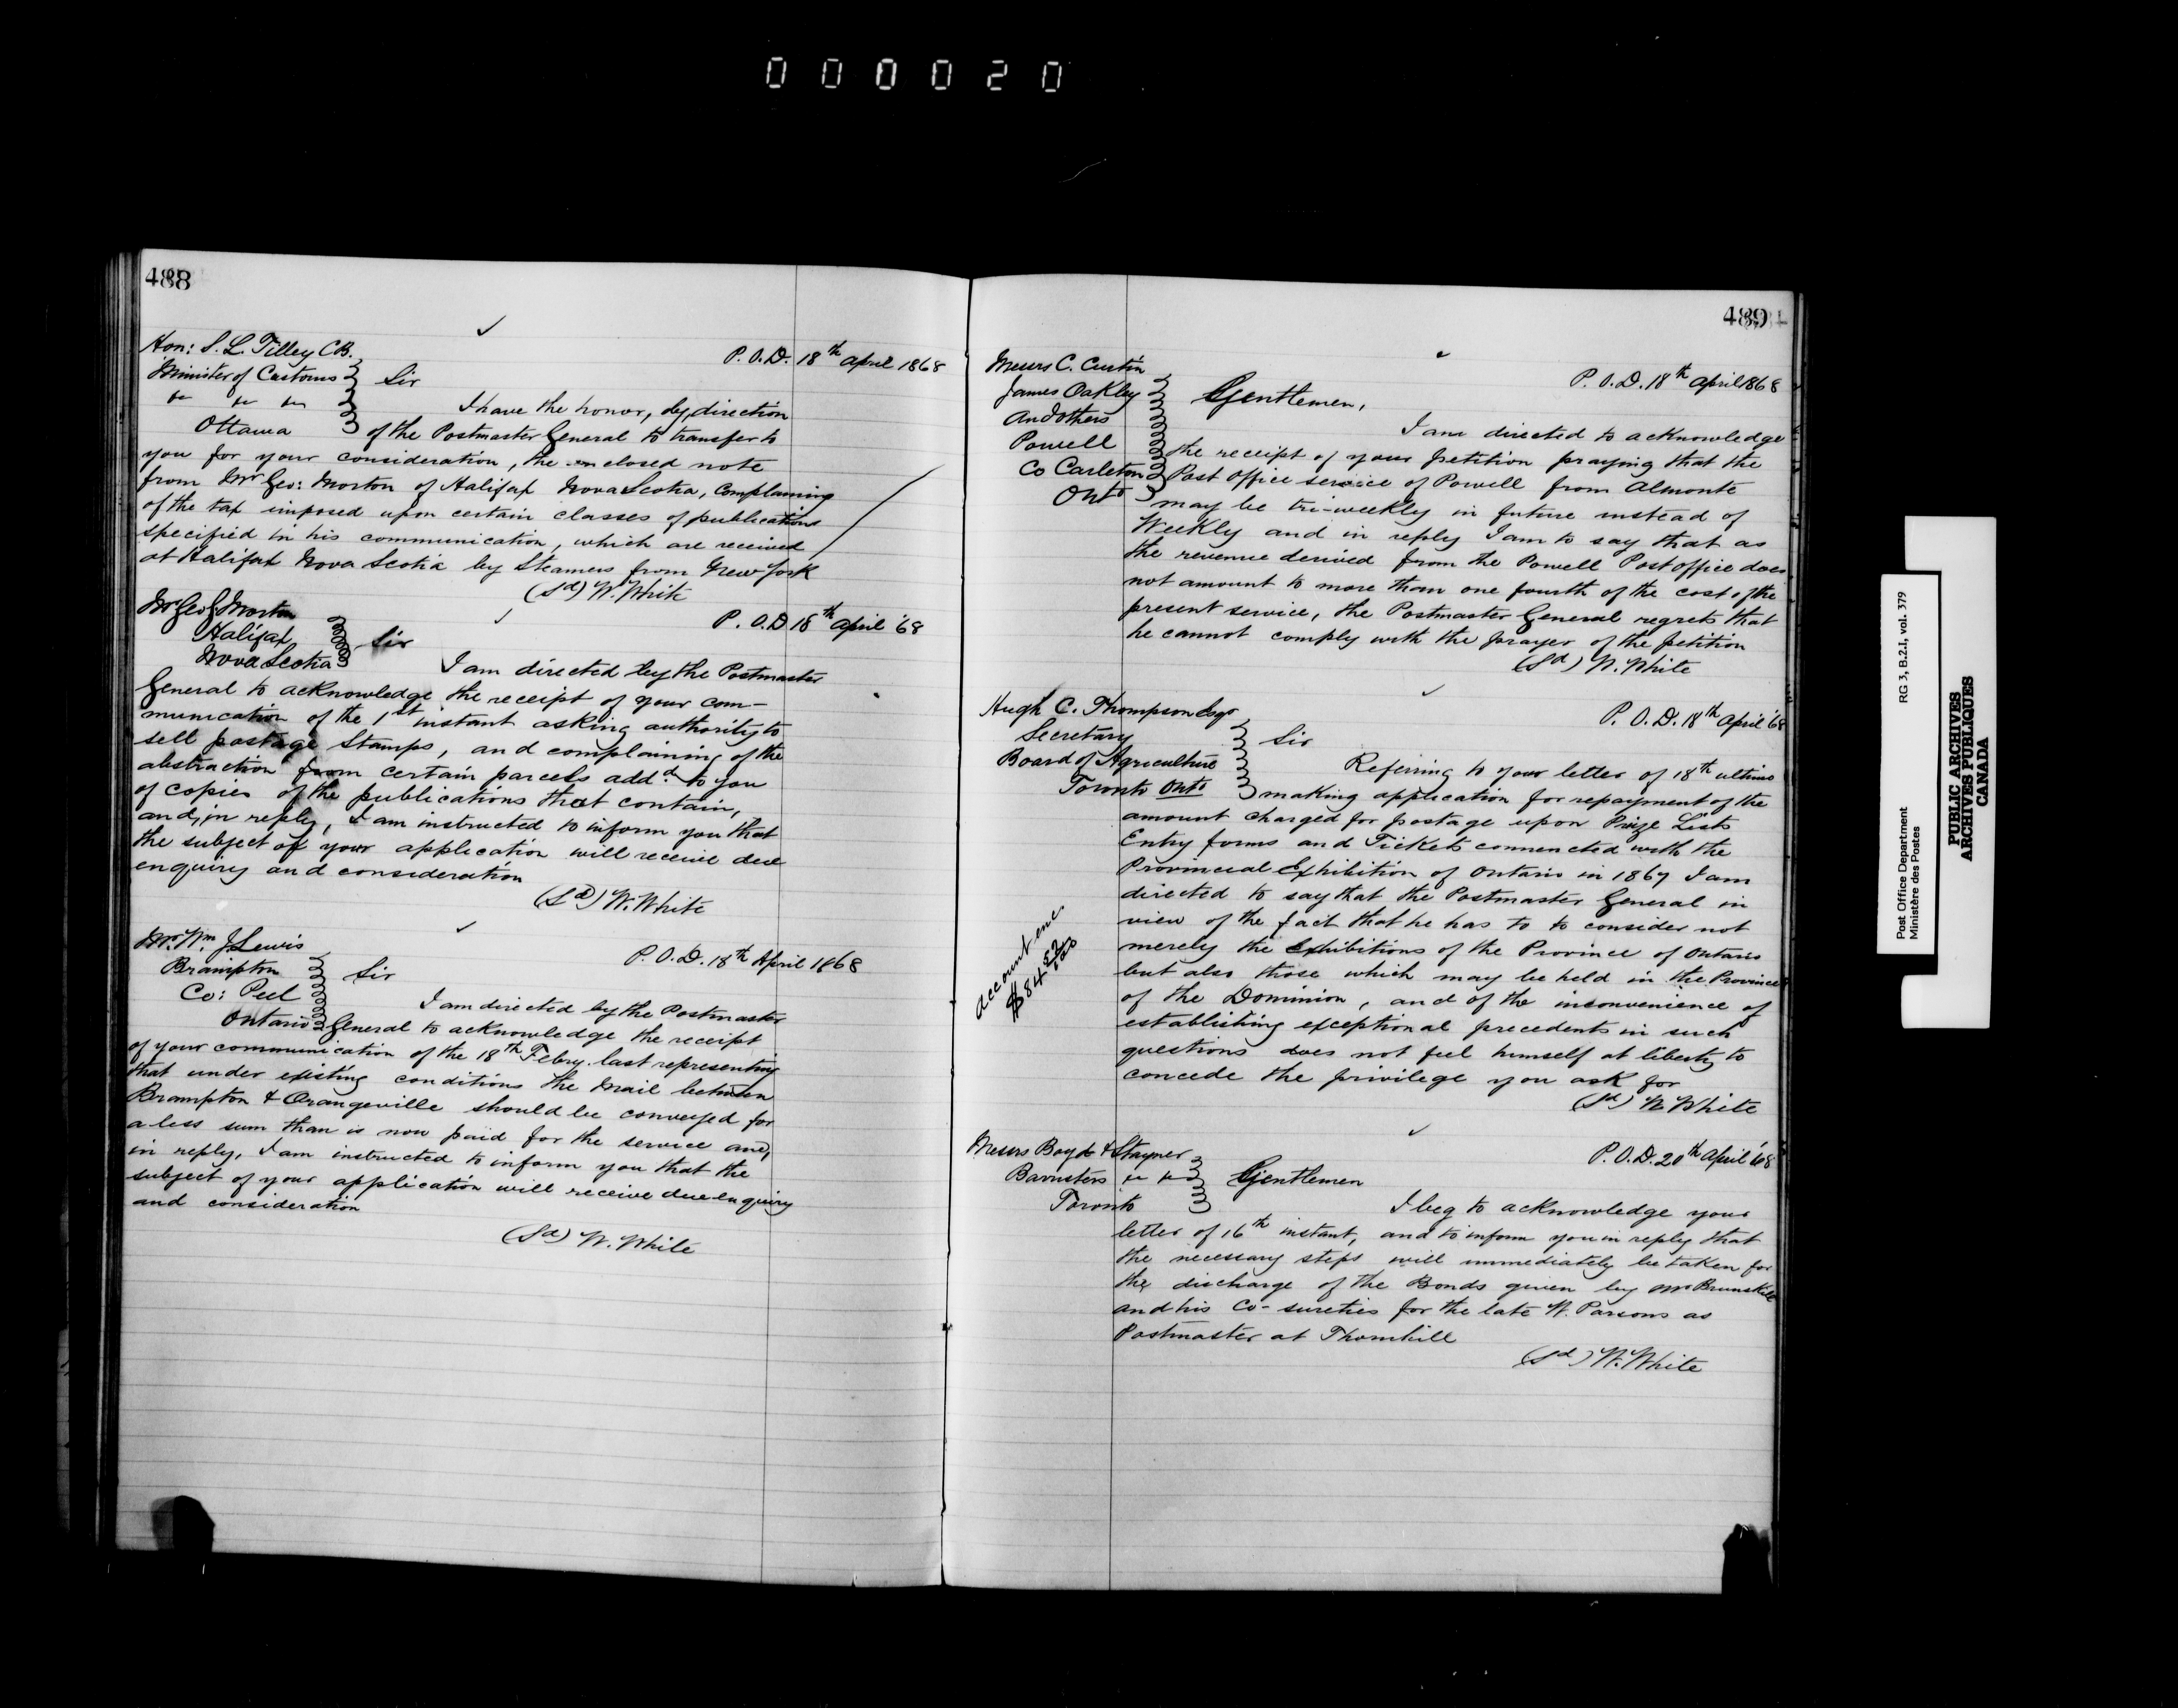 000020
488
Hon: S. L. Tilley CB.
P.O.D. 18th April 1868
Minister of Customs
Sir
Ottawa
I have the honor, by direction
of the Postmaster General to transfer to
you for your consideration, the enclosed note
from Mr Geo: Morton of Halifax Nova Scotia, complaining
of the tax imposed upon certain classes of publications
specified in his communication, which are received
at Halifax Nova Scotia by Steamers from New York
(Sd) W. White
Mr Geo E Morton
P.O.D 18th April '68
Halifax
Nova Scotia
Sir
I am directed by the Postmaster
General to acknowledge the receipt of your com-
munication of the 1st instant asking authority to
sell postage Stamps, and complaining of the
abstraction from certain parcels addd to you
of copies of the publications that contain,
and, in reply, I am instructed to inform you that
the subject of your application will receive due
enquiry and consideration
(Sd) W. White
Mr Wm. J. Lewis
P.O.D. 18th April 1868
Brampton
Sir
Co: Peel
Ontario
I am directed by the Postmaster
General to acknowledge the receipt
of your communication of the 18th Febry. last representing
that under existing conditions the Mail between
Brampton & Orangeville should be conveyed for
a less sum than is now paid for the service and,
in reply, I am instructed to inform you that the
subject of your application will receive due enquiry
and consideration
(Sd) W. White
489
Messrs C. Curtin
P.O.D. 18th April 1868
James Oakley
and others
Powell
Co Carleton
Onto
Gentlemen,
I am directed to acknowledge
the receipt of your petition praying that the
Post Office service of Powell from Almonte
may be tri-weekly in future instead of
Weekly and in reply I am to say that as
the revenue derived from the Powell Post office does
not amount to more than one fourth of the cost of the
present service, the Postmaster General regrets that
he cannot comply with the prayer of the petition
(Sd) W. White
Hugh C. Thompson Esqr
P.O.D. 18th April '68
Secretary
Sir
Board of Agriculture
Toronto Onto
Referring to your letter of 18th ultimo
making application for repayment of the
amount charged for postage upon Prize Lists
Entry forms and Tickets connected with the
Provincial Exhibition of Ontario in 1867 I am
directed to say that the Postmaster General in
view of the fact that he has to to consider not
merely the Exhibitions of the Province of Ontario
but also those which may be held in the Provinces
of the Dominion, and of the inconvenience of
establishing exceptional precedents in such
questions does not feel himself at liberty to
concede the privilege you ask for
(Sd) W White
Account enc.
$84
Messrs Boyd & Stayner
P.O.D. 20th April '68
Barristers
Gentlemen
Toronto
I beg to acknowledge your
letter of 16th instant, and to inform you in reply that
the necessary steps will immediately be taken for
the discharge of the Bonds given by Mr Brunskill
and his Co-sureties for the late W. Parsons as
Postmaster at Thornhill
(Sd) W. White
Post Office Department
Ministère des Postes
RG 3, B.2.1, vol. 379
PUBLIC ARCHIVES
ARCHIVES PUBLIQUES
CANADA